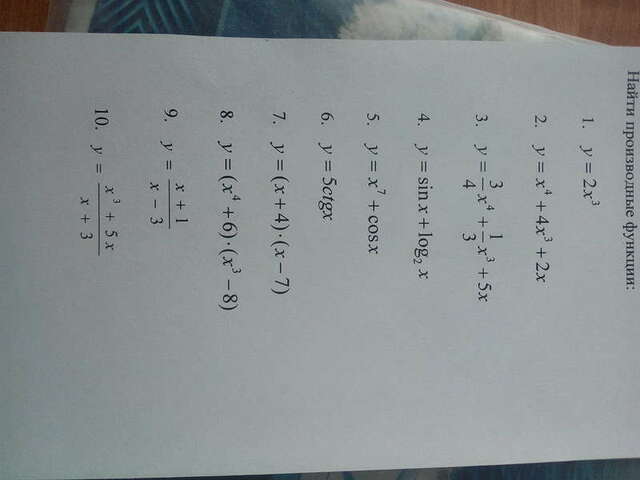 Найти производные функции:
1. y = 2x³
2. y = x⁴ + 4x³ + 2x
3. y = 3/4 x⁴ + 1/3 x³ + 5x
4. y = sin x + log₂ x
5. y = x⁷ + cos x
6. y = 5ctgx
7. y = (x + 4) · (x − 7)
8. y = (x⁴ + 6) · (x³ − 8)
9. y = (x + 1)/(x − 3)
10. y = (x³ + 5x)/(x + 3)